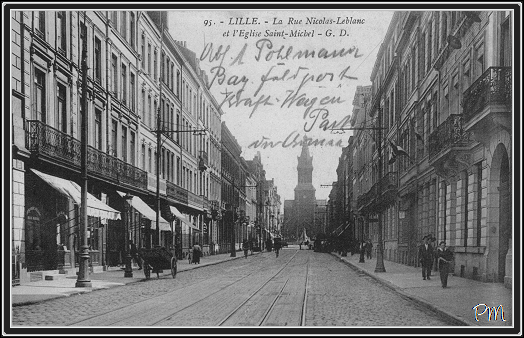 95. - LILLE. - La Rue Nicolas-Leblanc
et l'Eglise Saint-Michel - G. D.
Abs: Pohlmann
Bay. feld post
Kraft-Wagen
Park
PM